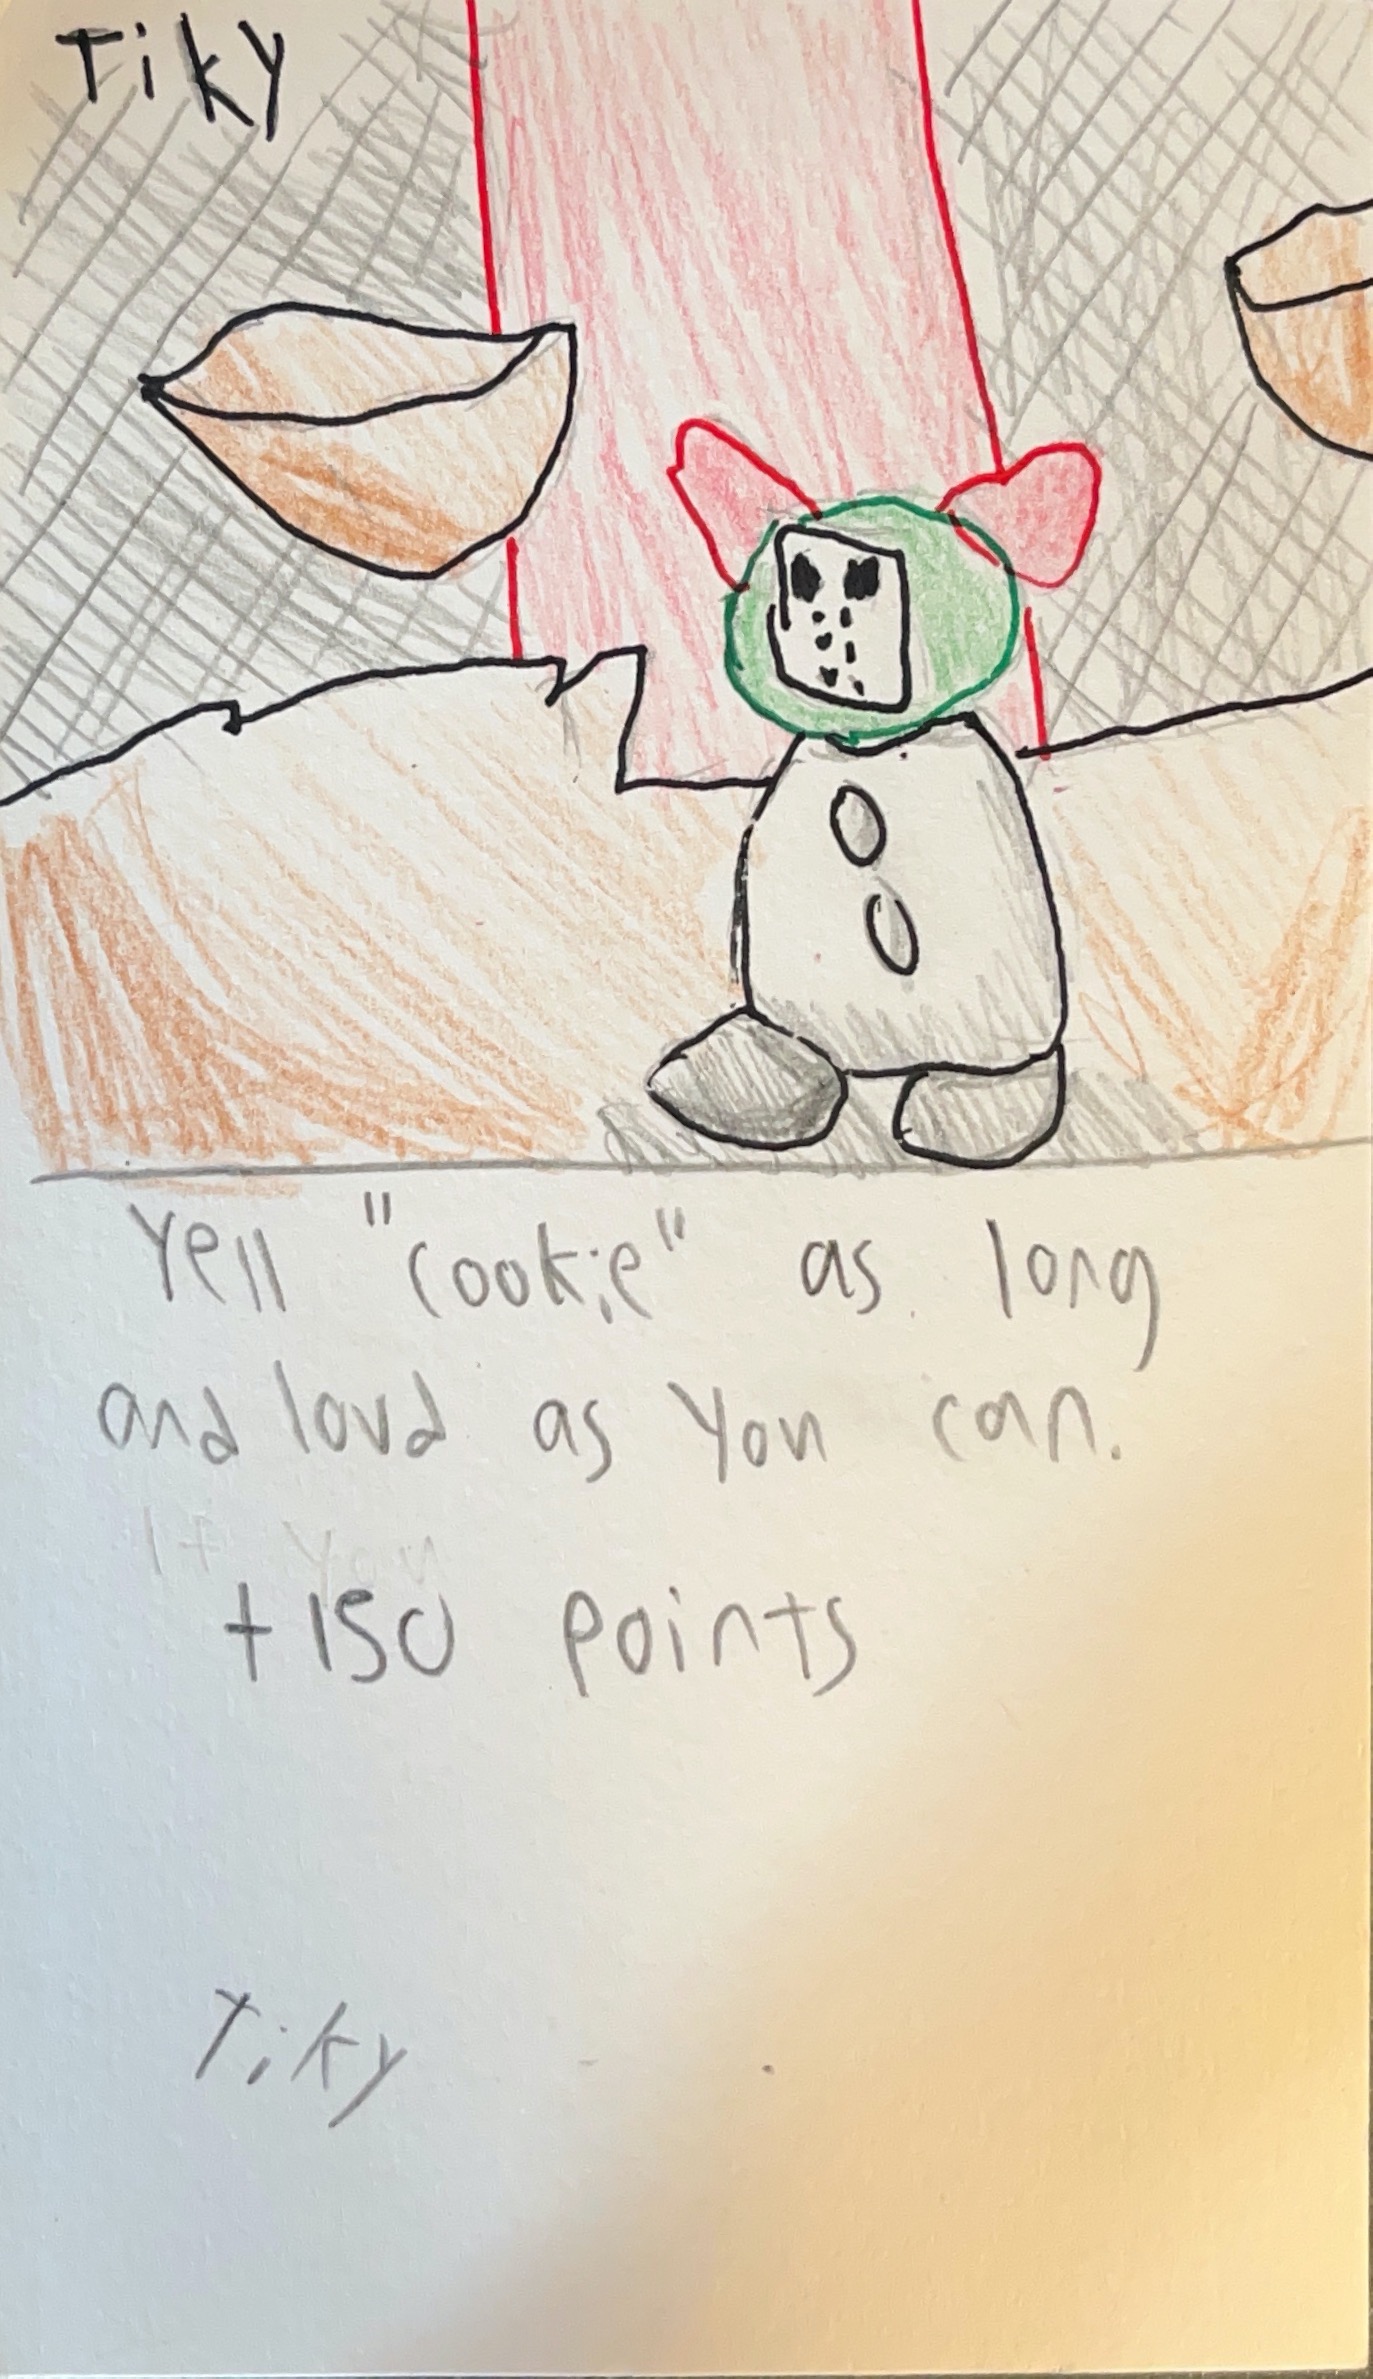 Tiky
Yell "cookie" as long
and loud as you can.
If you
+150 points
Tiky